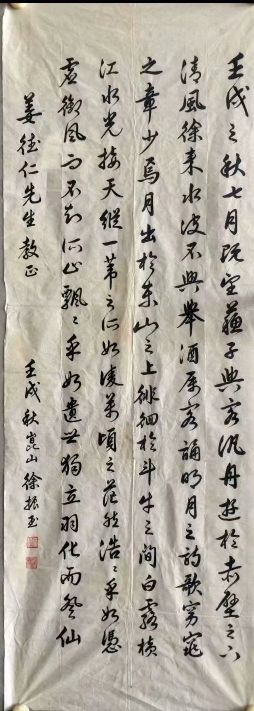 壬戌之秋七月既望蘇子與客汎舟遊於赤壁之下
清風徐來水波不興舉酒屬客誦明月之詩歌窈窕
之章少焉月出於東山之上徘徊於斗牛之間白露橫
江水光接天縱一葦之所如凌萬頃之茫然浩々乎如憑
虛御風而不知所止飄々乎如遺世獨立羽化而登仙
姜德仁先生教正
壬戌秋崑山徐振玉